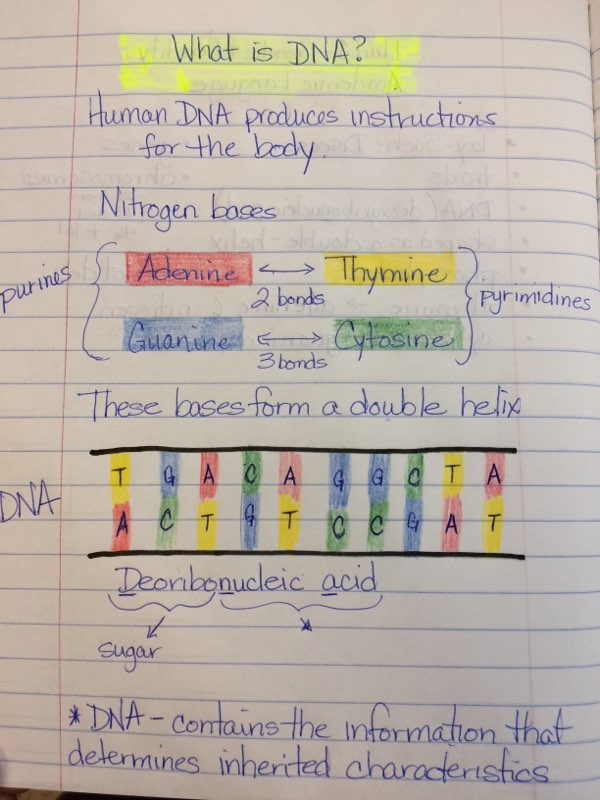 What is DNA?
Human DNA produces instructions
for the body.
Nitrogen bases
purines
Adenine ↔ Thymine
2 bonds
Guanine ↔ Cytosine
3 bonds
pyrimidines
These bases form a double helix
DNA
T G A C A G G C T A
A C T G T C C G A T
Deoribonucleic acid
sugar *
* DNA - contains the information that
determines inherited characteristics